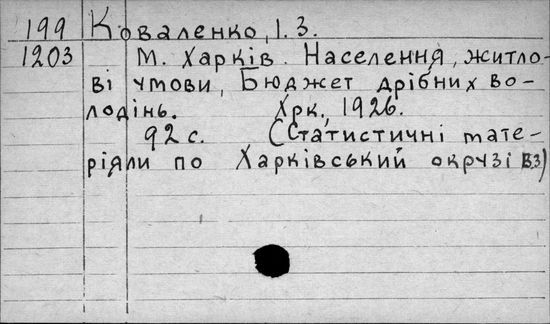 199 Коваленко, І. З.
1203 М. Харків. Населення, житло-
ві умови, Бюджет дрібних во-
лодінь. Хрк., 1926.
92 с. (Статистичні мате-
ріяли по Харківський окрузі В.3)